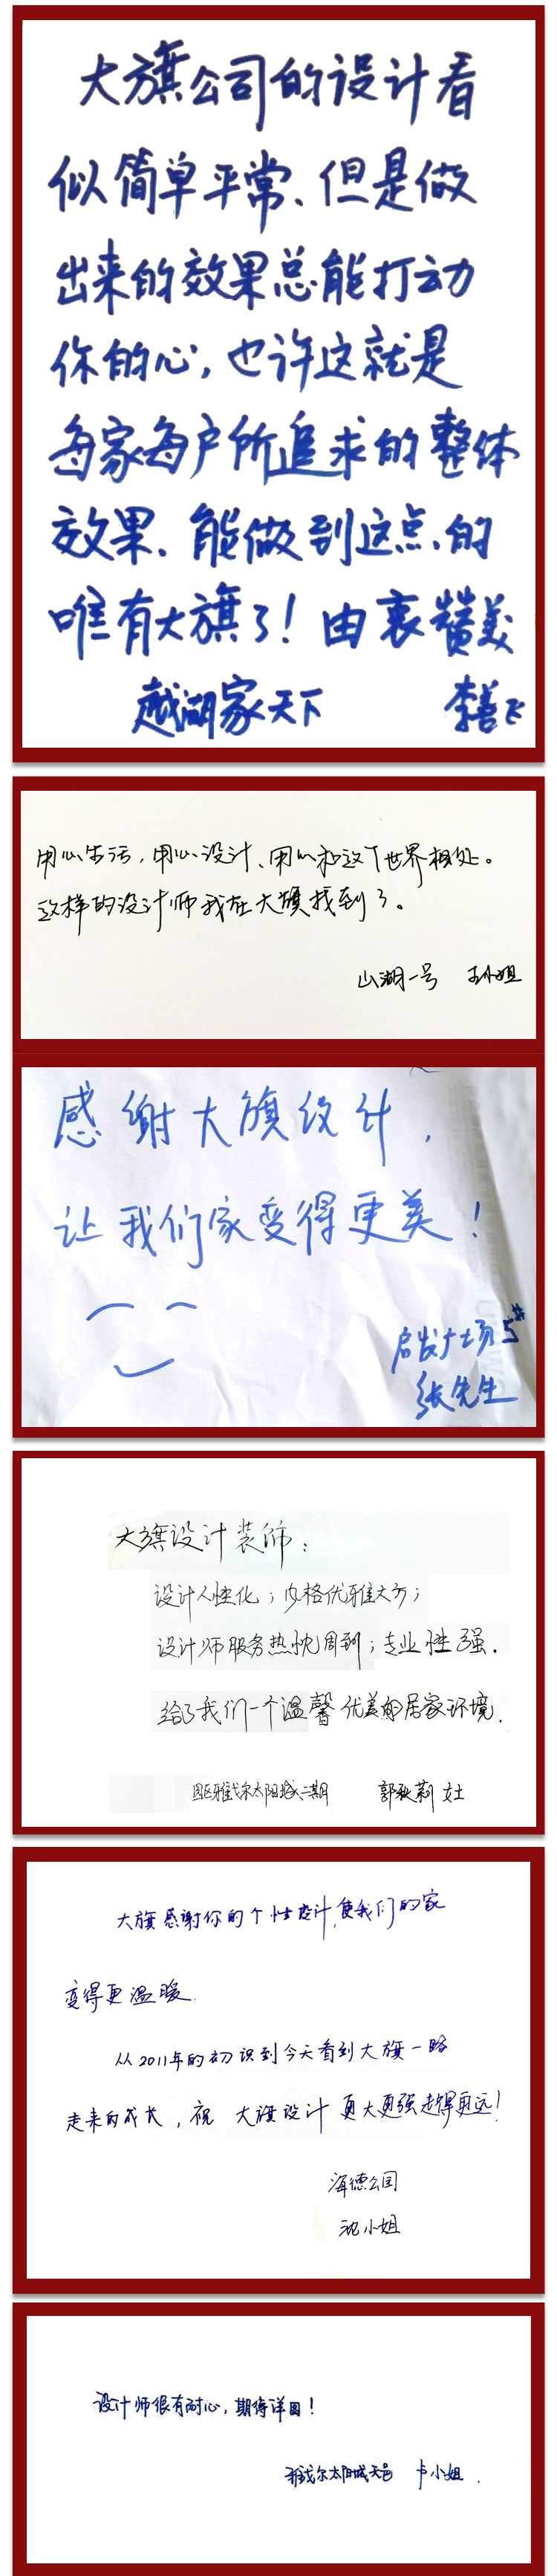 大旗公司的设计看
似简单平常、但是做
出来的效果总能打动
你的心,也许这就是
每家每户所追求的整体
效果、能做到这点、的
唯有大旗了!由衷赞美
越湖家天下 李善飞
用心生活,用心设计、用心和这个世界相处。
这样的设计师我在大旗找到了。
山湖一号 王小姐
感谢大旗设计,
让我们家变得更美!
启发广场5#
张先生
大旗设计装饰:
设计人性化;风格优雅大方;
设计师服务热忱周到;专业性强.
给了我们一个温馨优美的居家环境.
雅戈尔太阳城二期 郭秋莉 女士
大旗感谢你的个性设计,使我们的家
变得更温暖.
从2011年的初识到今天看到大旗一路
走来的成长,祝 大旗设计 更大更强走得更远!
海德公园
沈小姐
设计师很有耐心,期待详图!
雅戈尔太阳城天邑 卢小姐.